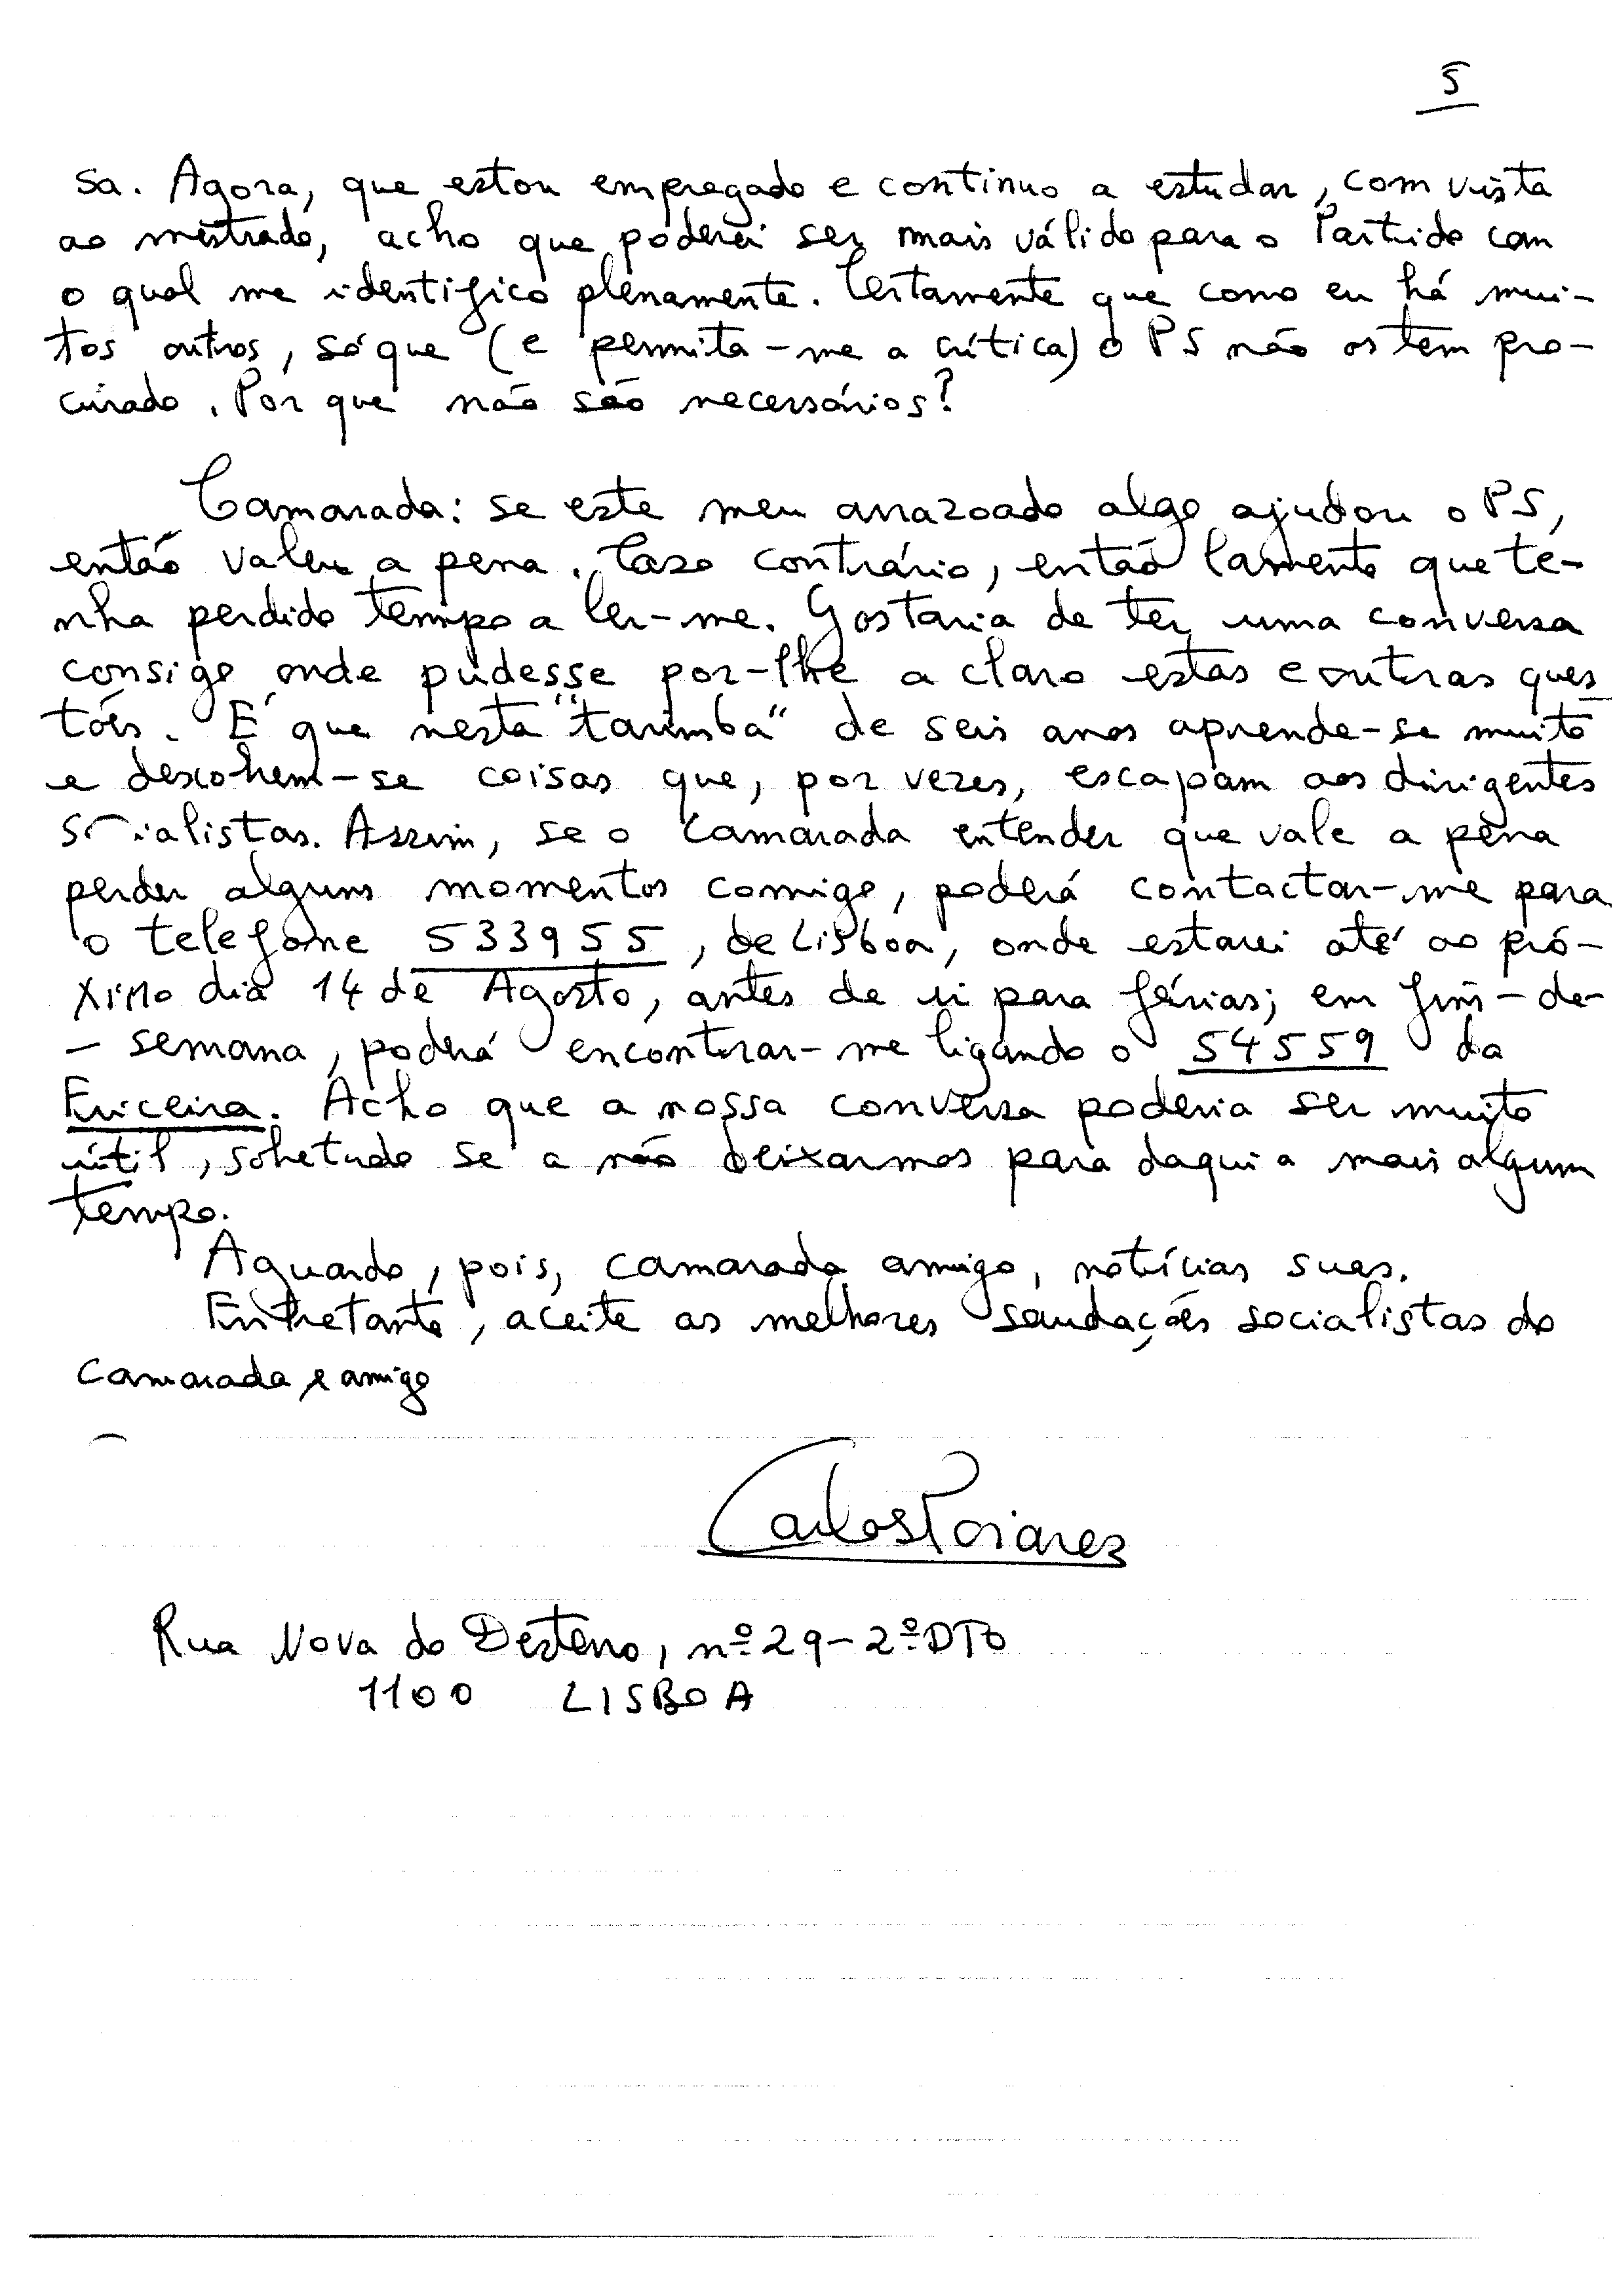 5
sa. Agora, que estou empregado e continuo a estudar, com vista
ao mestrado, acho que poderei ser mais válido para o Partido com
o qual me identifico plenamente. Certamente que como eu há mui-
tos outros, só que (e permita-me a crítica) o PS não os tem pro-
curado. Por que não são necessários?
Camarada: se este meu arrazoado algo ajudou o PS,
então valeu a pena. Caso contrário, então lamento que te-
nha perdido tempo a ler-me. Gostaria de ter uma conversa
consigo onde pudesse por-lhe a claro estas e outras ques
tões. É que nesta "tarimba" de seis anos aprende-se muito
e descobrem-se coisas que, por vezes, escapam aos dirigentes
socialistas. Assim, se o camarada entender que vale a pena
perder alguns momentos comigo, poderá contactar-me para
o telefone 533955, de Lisboa, onde estarei até ao pró-
ximo dia 14 de Agosto, antes de ir para férias; em fim-de-
- semana, poderá encontrar-me ligando o 54559 da
Ericeira. Acho que a nossa conversa poderia ser muito
útil, sobretudo se a não deixarmos para daqui a mais algum
tempo.
Aguardo, pois, camarada amigo, notícias suas.
Entretanto, aceite as melhores saudações socialistas do
camarada e amigo
Carlos Poiares
Rua Nova do Desterro, nº 29-2º DTO
1100 LISBOA